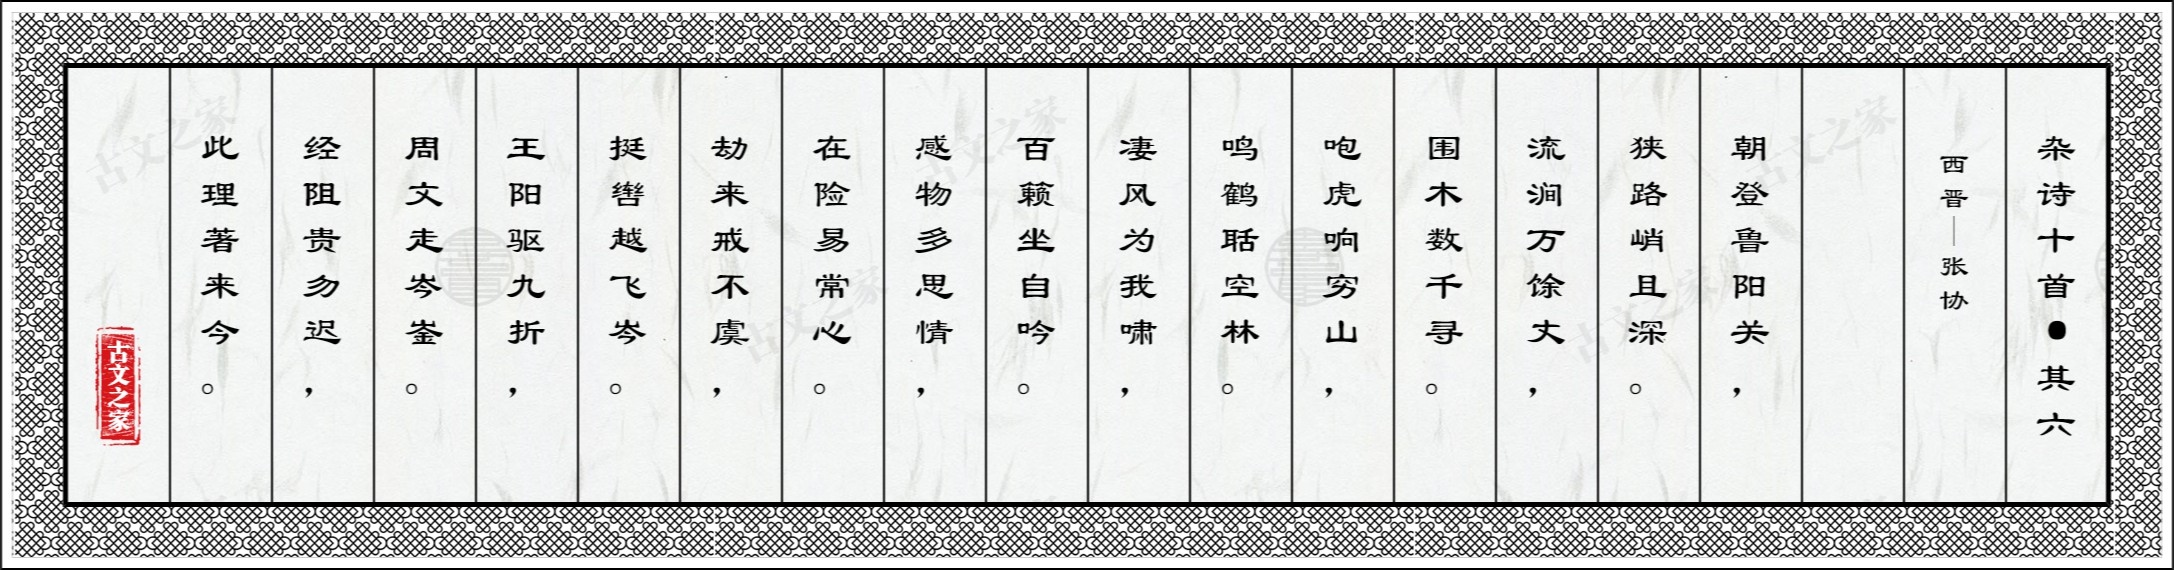 杂诗十首●其六
西晋—张协
朝登鲁阳关，
狭路峭且深。
流涧万馀丈，
围木数千寻。
咆虎响穷山，
鸣鹤聒空林。
凄风为我啸，
百籁坐自吟。
感物多思情，
在险易常心。
劫来戒不虞，
挺辔越飞岑。
王阳驱九折，
周文走岑崟。
经阻贵勿迟，
此理著来今。
古文之家